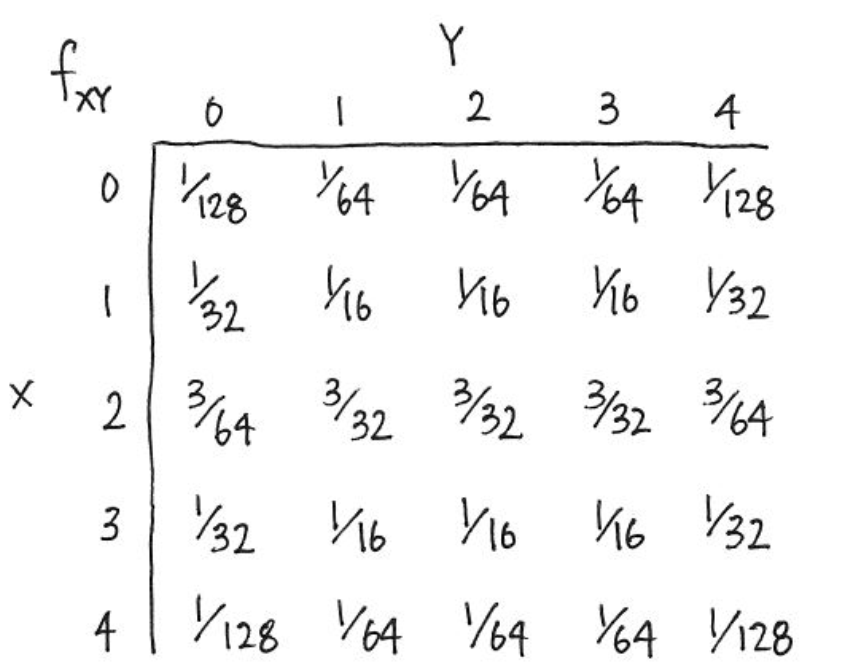 Y
fXY
0 1 2 3 4
0 1/128 1/64 1/64 1/64 1/128
1 1/32 1/16 1/16 1/16 1/32
X
2 3/64 3/32 3/32 3/32 3/64
3 1/32 1/16 1/16 1/16 1/32
4 1/128 1/64 1/64 1/64 1/128